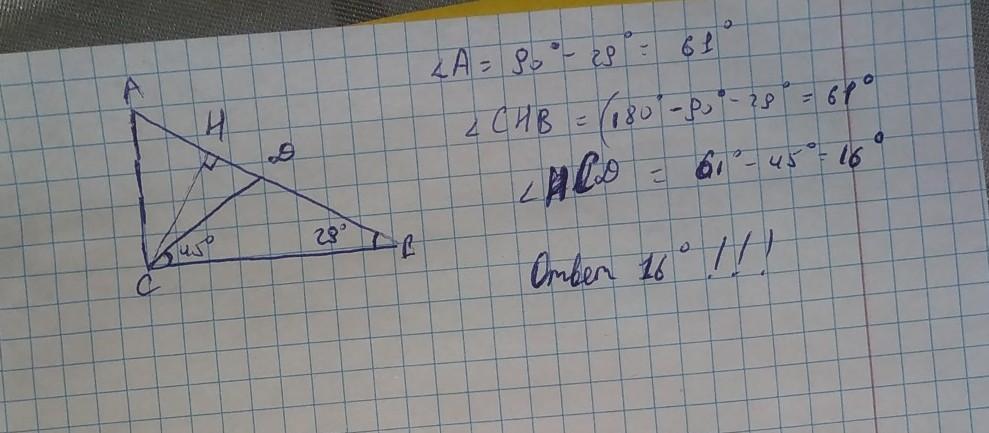 A
H
D
45°
29°
B
C
∠A = 90° - 29° = 61°
∠CHB = (180° - 90° - 29° = 61°
∠HCD = 61° - 45° = 16°
Ответ 16° !!!